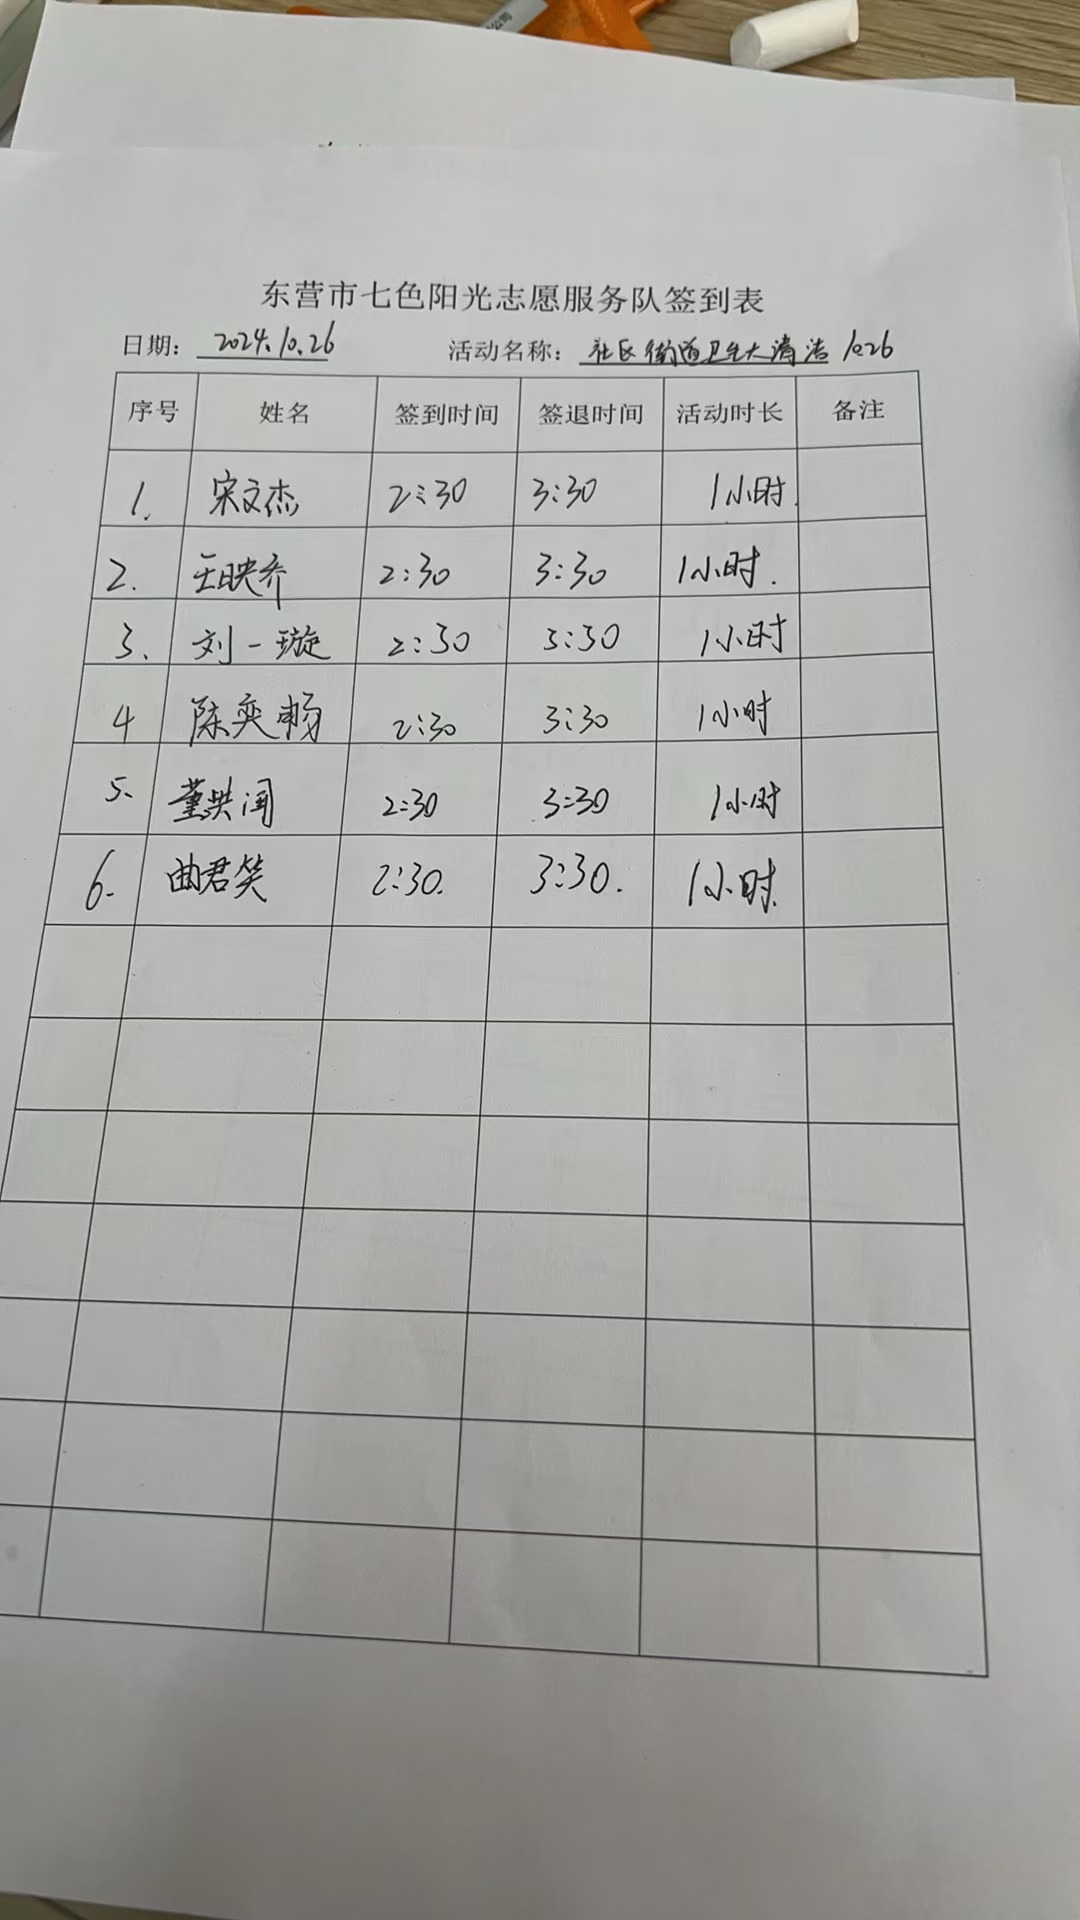 东营市七色阳光志愿服务队签到表
日期: 2024.10.26 活动名称: 社区街道卫生大清洁 10.26
序号 姓名 签到时间 签退时间 活动时长 备注
1. 宋文杰 2:30 3:30 1小时.
2. 王映乔 2:30 3:30 1小时.
3. 刘一璇 2:30 3:30 1小时
4 陈奕畅 2:30 3:30 1小时
5. 董洪闰 2:30 3:30 1小时
6. 曲君笑 2:30. 3:30. 1小时.